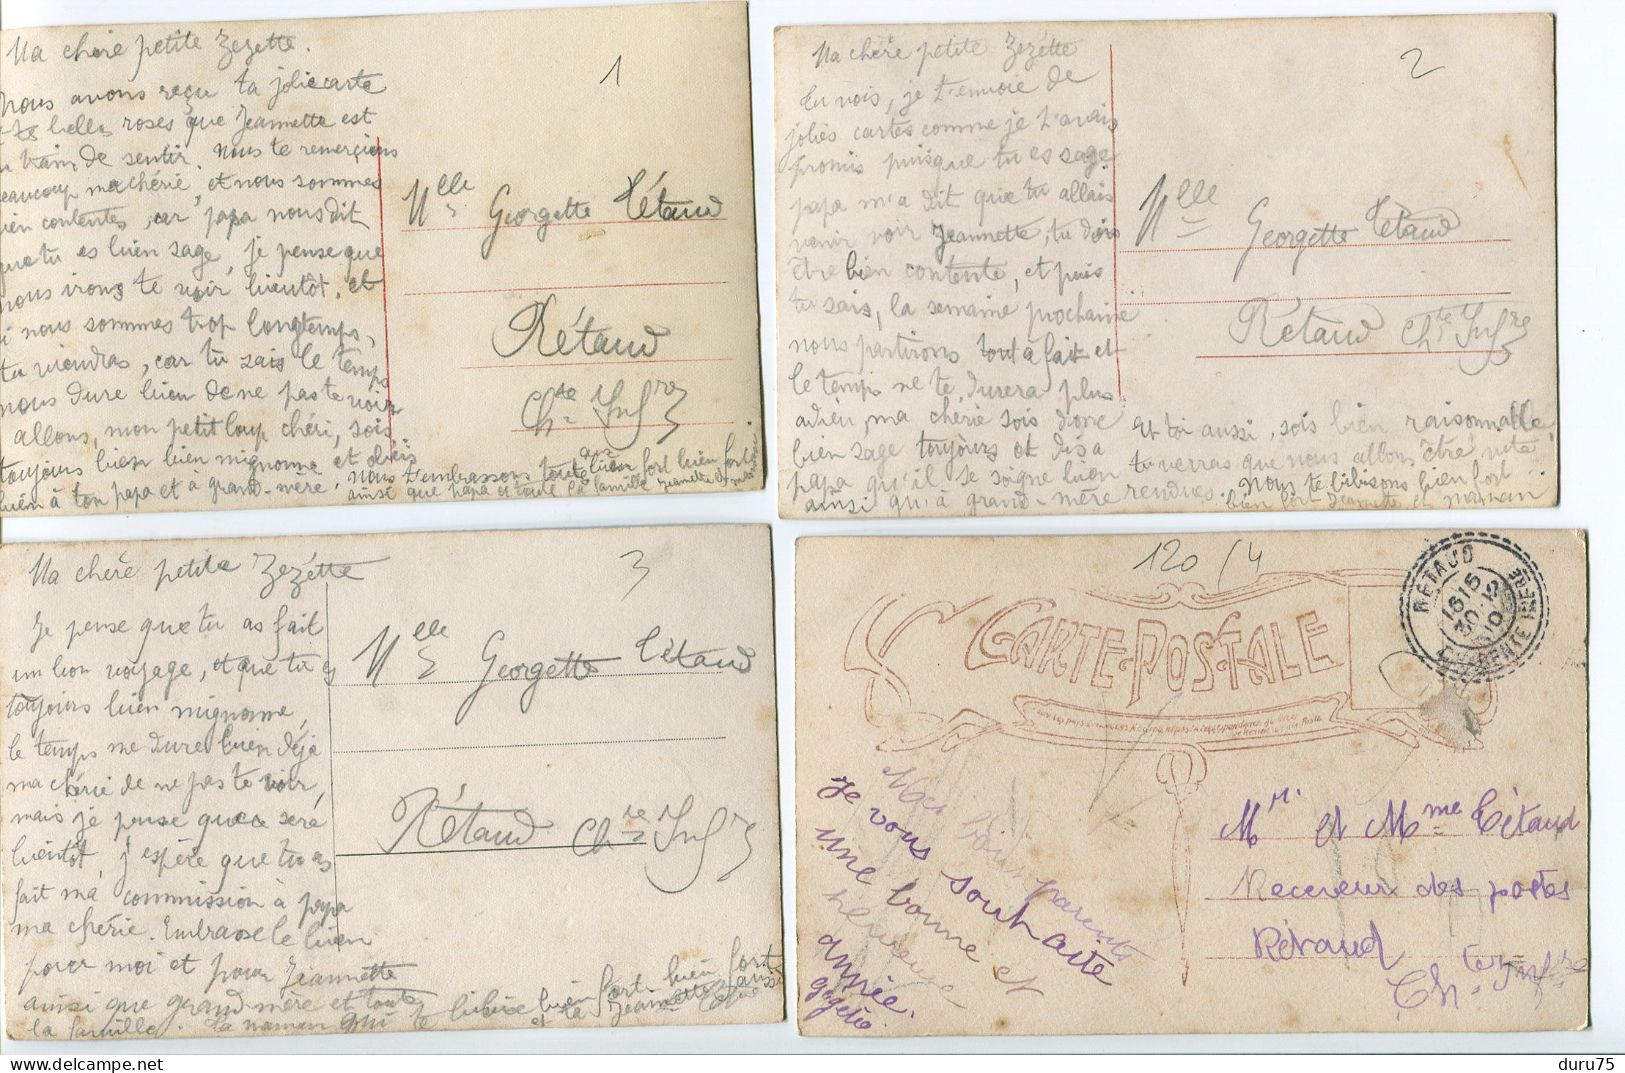 Ma chère petite Zezette.
1
Nous avons reçu ta jolie carte
belles roses que Jeannette est
train de sentir. Nous te remerçions
beaucoup ma chérie, et nous sommes
bien contentes, car papa nous dit
que tu es bien sage, je pense que
nous irons te voir bientôt, et
si nous sommes trop longtemps,
tu viendras, car tu sais le temps
nous dure bien de ne pas te voir
allons, mon petit loup chéri, sois
toujours bien bien mignonne et obéis
bien à ton papa et a grand-mère. Nous t'embrassons toutes bien fort bien fort
ainsi que papa et toute la famille Jeannette et maman
Mlle Georgette Tétaud
Rétaud
Chte Infre
Ma chère petite Zezétte
2
Tu vois, je t'envoie de
jolies cartes comme je t'avais
promis puisque tu es sage
papa m'a dit que tu allais
venir voir Jeannette, tu dois
être bien contente, et puis
tu sais, la semaine prochaine
nous partirons tout à fait et
le temps ne te durera plus
adieu, ma chérie sois donc
bien sage toujours et dis à
papa qu'il se soigne bien
ainsi qu'à grand-mère
et toi aussi, sois bien raisonnable,
tu verras que nous allons être vite
rendues. Nous te bibisons bien fort
bien fort Jeannette et maman
Mlle Georgette Tétaud
Rétaud Chte Infre
Ma chère petite Zezétte
3
Je pense que tu as fait
un bon voyage, et que tu es
toujours bien mignonne,
le temps me dure bien déjà
ma chérie de ne pas te voir,
mais je pense que ce sera
bientôt, j'espère que tu as
fait ma commission à papa
ma chérie. Embrasse le bien
pour moi et pour Jeannette
ainsi que grand-mère et toute
la famille. Ta maman qui te bibise bien fort bien fort
et ta Jeannette aussi
Mlle Georgette Tétaud
Rétaud Chte Infre
120/4
CARTE-POSTALE
RETAUD
16 15
30 12
10
CHARENTE INFRE
Mes bons parents
Je vous souhaite
une bonne et
heureuse
année.
Gégète
Mr. et Mme Tétaud
Receveur des postes
Rétaud
Ch. te Infre
delcampe.net
duru75